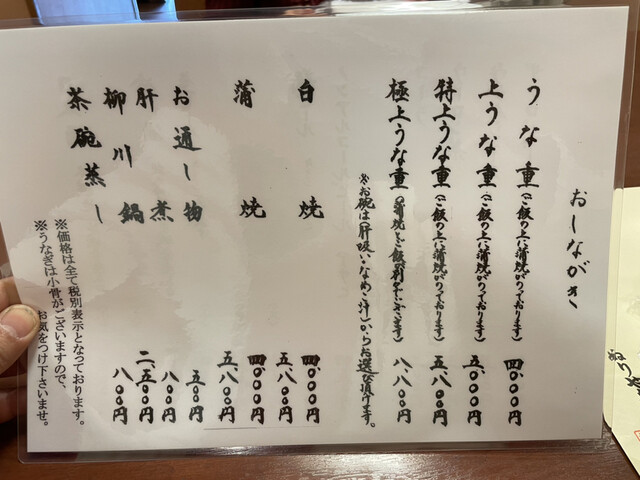 おしながき
うな重(ご飯の上に蒲焼がのっております) 四、〇〇〇円
上うな重(ご飯の上に蒲焼がのっております) 五、〇〇〇円
特上うな重(ご飯の上に蒲焼がのっております) 五、八〇〇円
極上うな重(蒲焼とご飯が別 八、八〇〇円
※お碗は(肝吸い・なめこ汁)からお選び頂けます。
白焼 四、〇〇〇円
五、八〇〇円
蒲焼 四、〇〇〇円
五、八〇〇円
お通し物 五〇〇円
肝煮 八〇〇円
柳川鍋 二、五〇〇円
茶碗蒸し 八〇〇円
※価格は全て税別表示となっております。
※うなぎは小骨がございますので、
お気をつけ下さいませ。